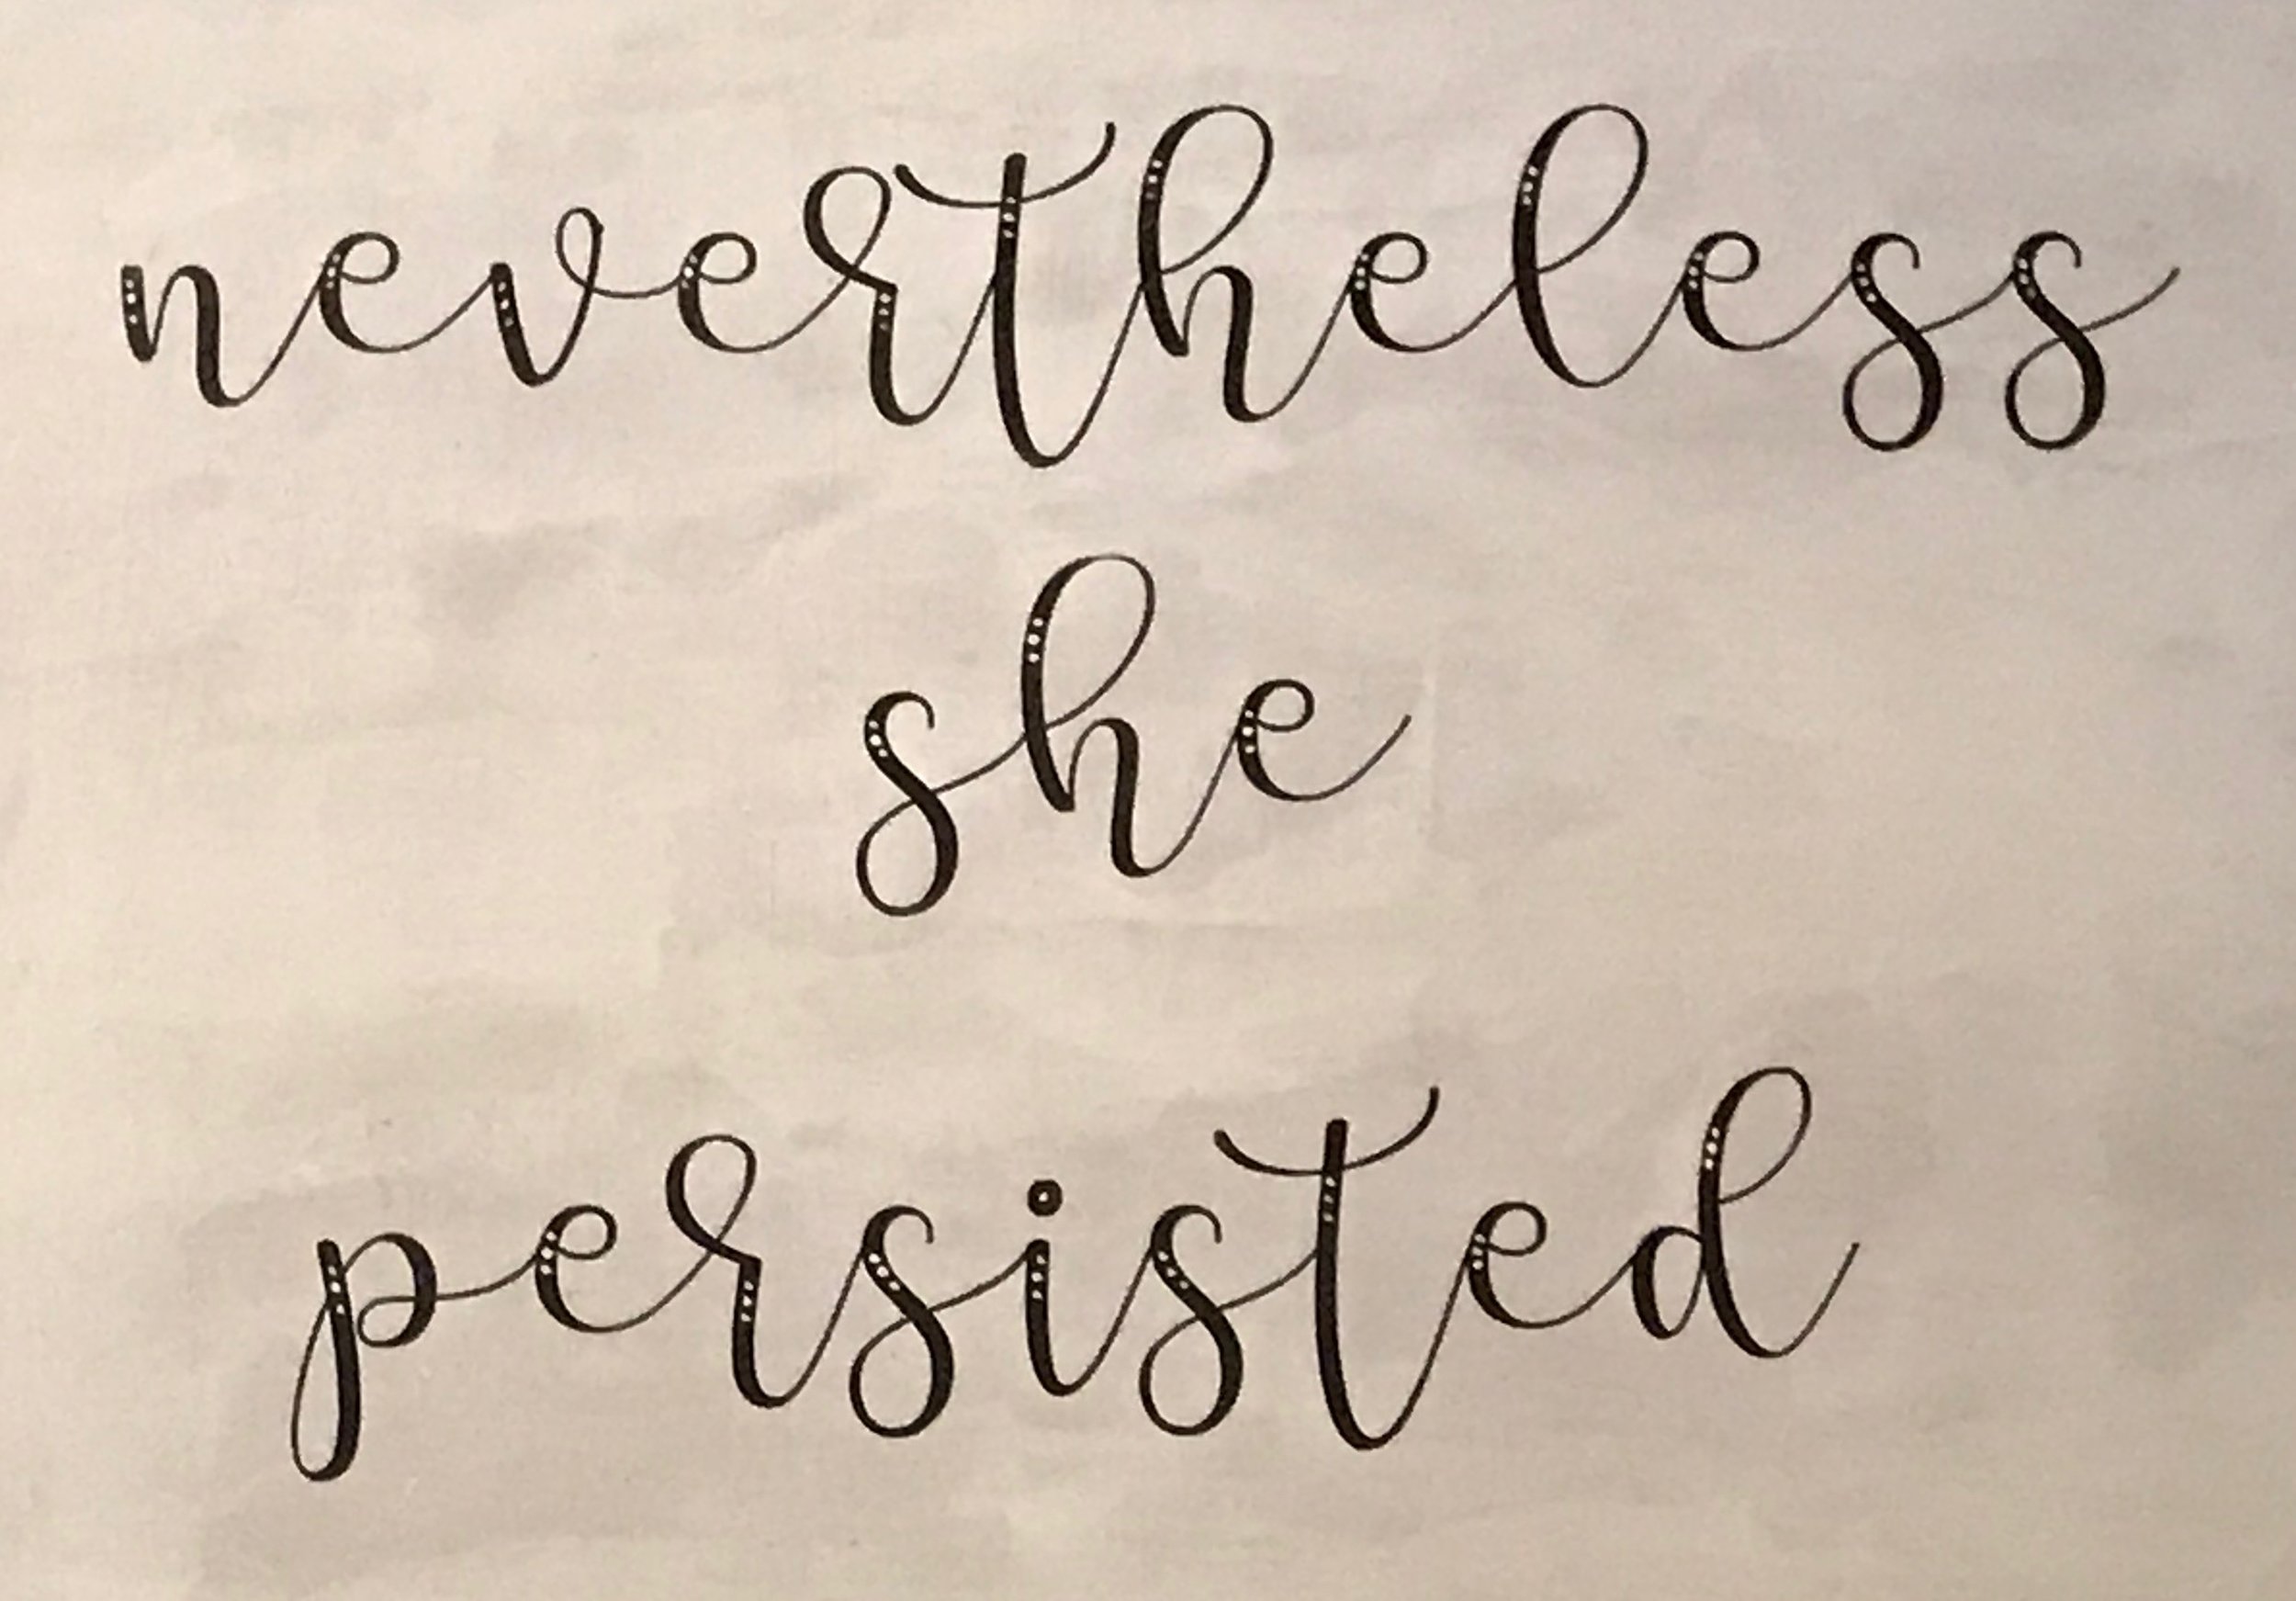 nevertheless
she
persisted